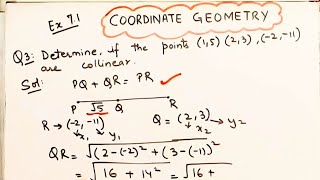 Ex 7.1
COORDINATE GEOMETRY
Q3: Determine, if the points (1,5) (2,3), (-2,-11)
are collinear.
Sol: PQ + QR = PR ✓
P √5 Q R
R → (-2, -11) Q = (2, 3) → y2
x1 y1 x2
QR = √(2-(-2)² + (3-(-11))²
= √16 + 14² = √16 +